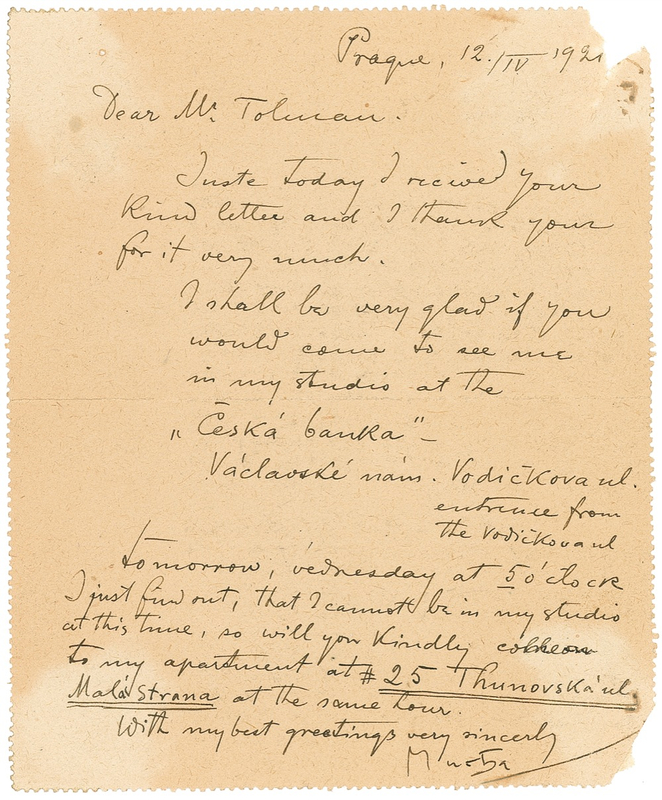 Prague, 12./IV 1921
Dear Mr. Tolman.
Juste today I recived your
Kind letter and I thank your
for it very much.
I shall be very glad if you
would come to see me
in my studio at the
„Česká banka"–
Václavské nám. Vodičkova ul.
entrence from
the Vodičkova ul
tomorrow, vednesday at 5 o'clock
I just find out, that I cannot be in my studio
at this time, so will you Kindly
to my apartment at # 25 Thunovská ul.
Malá Strana at the same hour.
With my best greetings very sincerly
Mucha